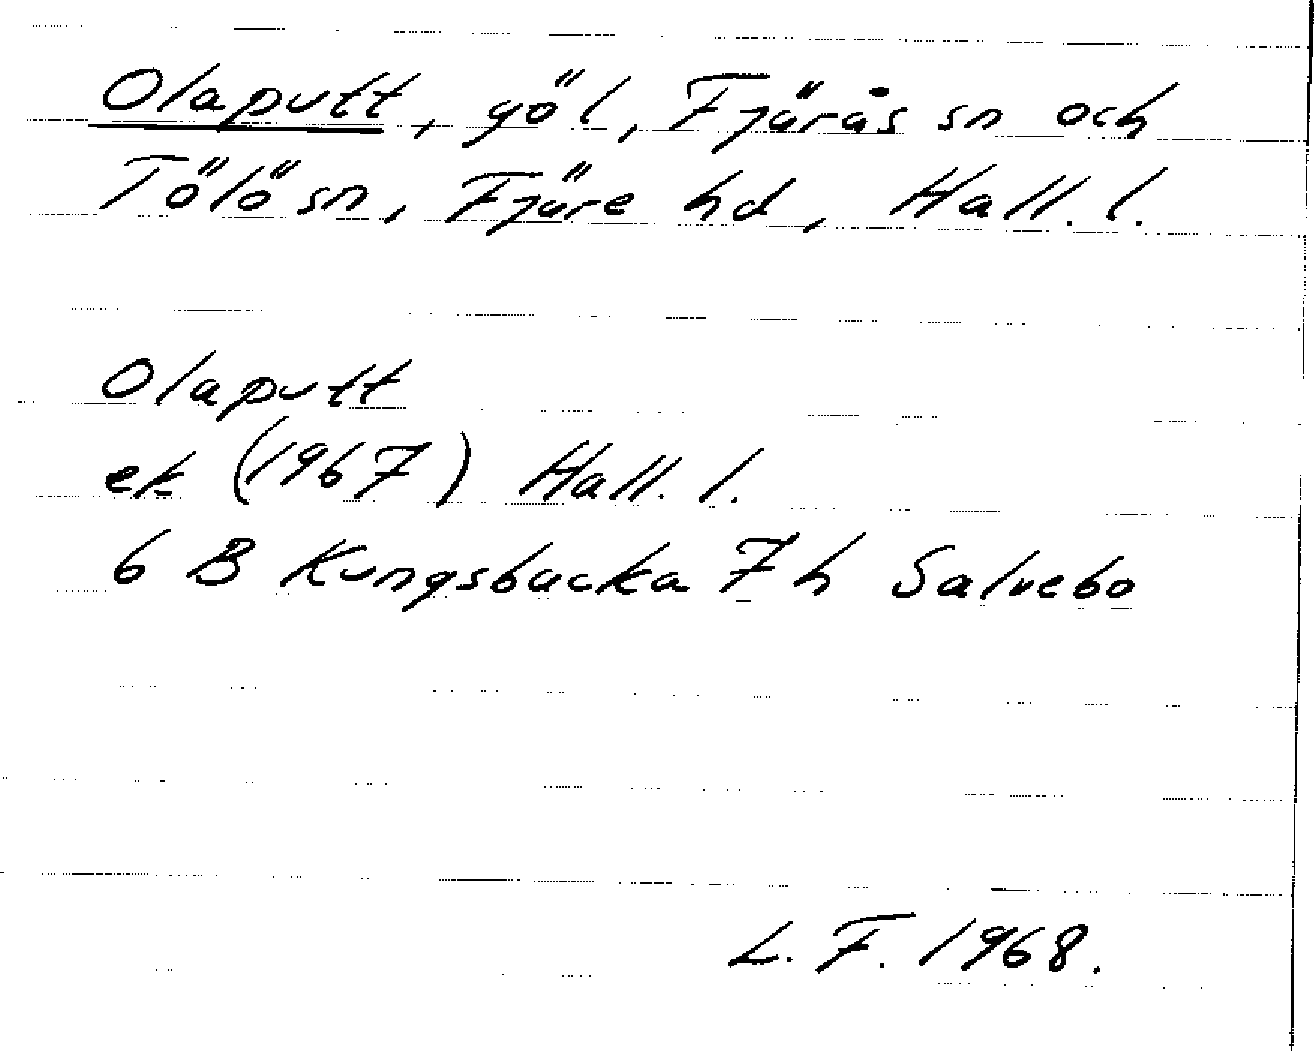 Olaputt, göl, Fjärås sn och
Tölö sn, Fjäre hd, Hall. l.
Olaputt
ek (1967) Hall. l.
6 B Kungsbacka 7 h Salvebo
L. F. 1968.